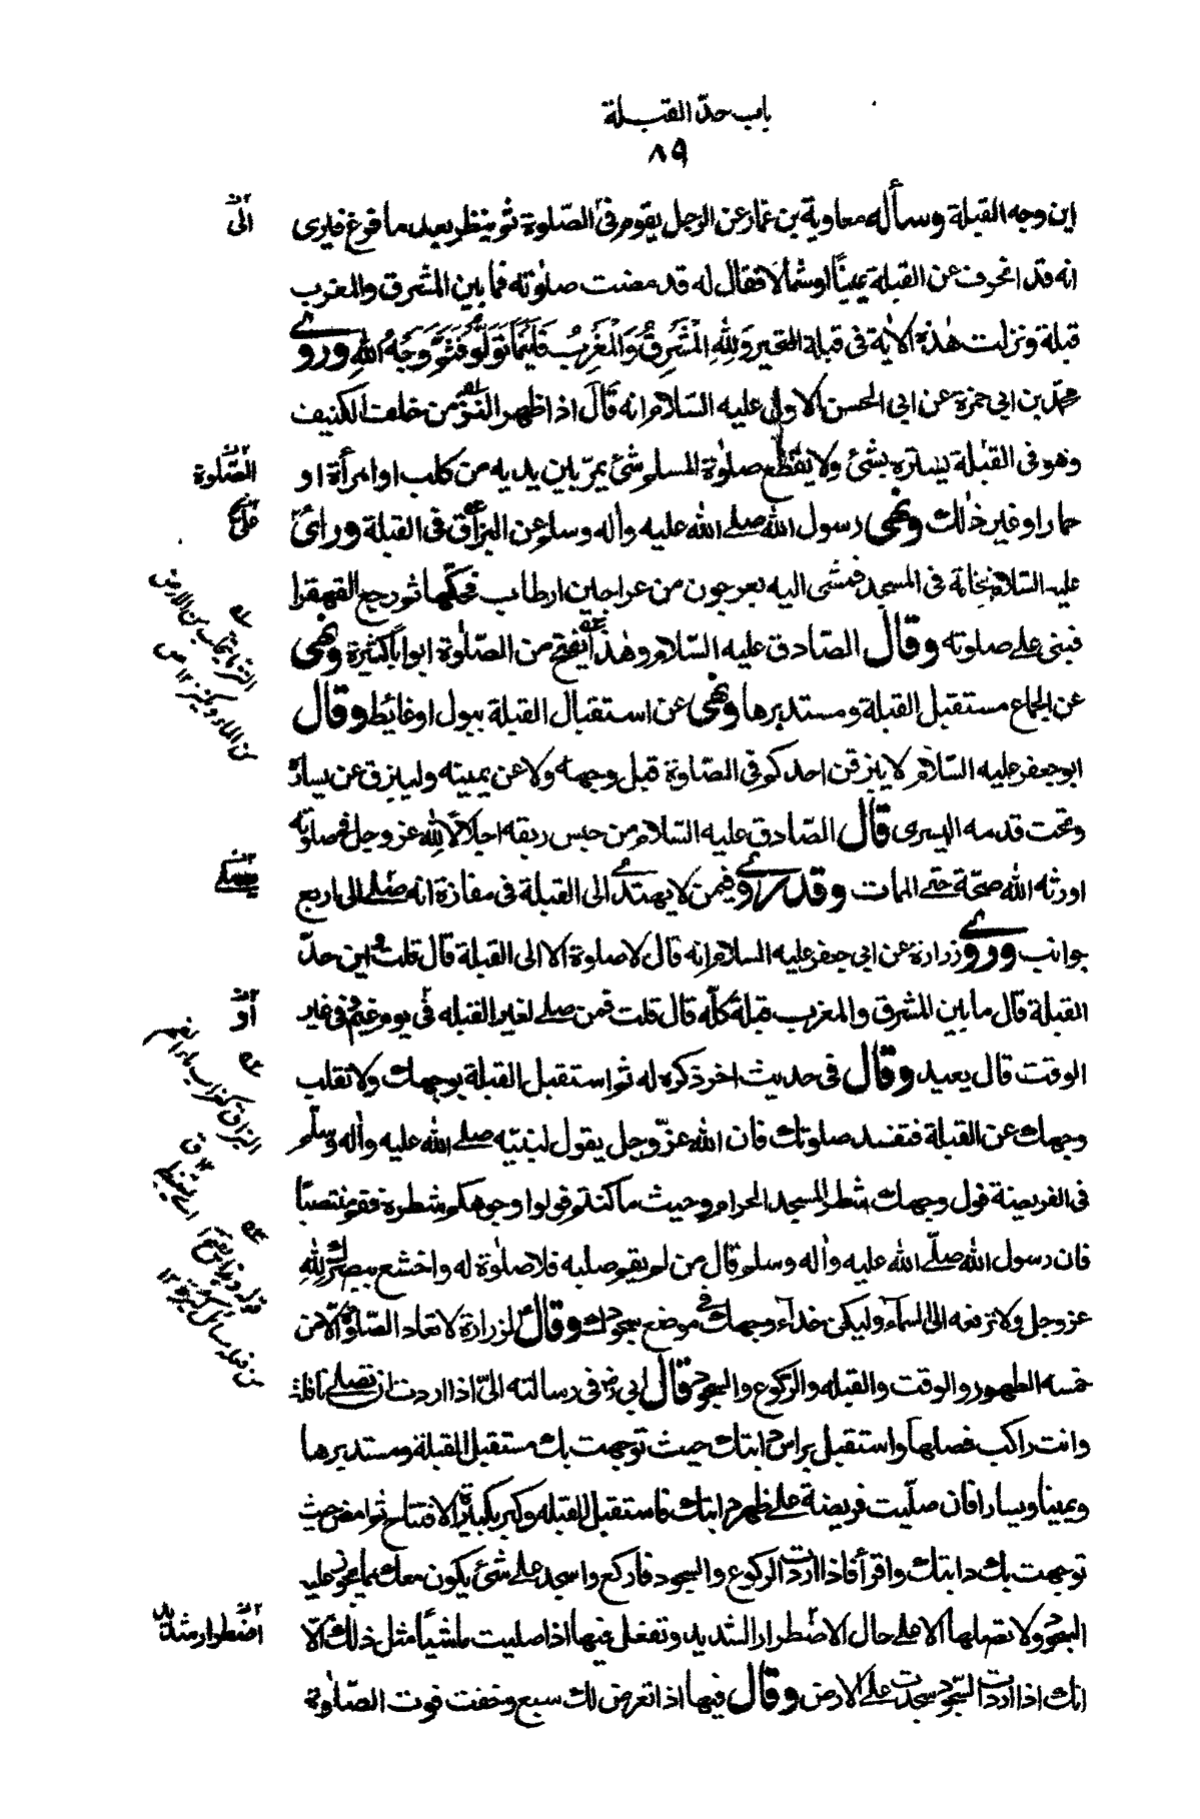 باب حدّ القبلة
٨٩
اين وجه القبلة وسأله معاوية بن عمّار عن الرجل يقوم فى الصّلوة ثم ينظر بعد ما فرغ فيرى
انه قد انحرف عن القبلة يمينًا او شمالا فقال له قد مضت صلوته فما بين المشرق والمغرب
قبلة ونزلت هذه الاية فى قبلة المتحير وَلِلّٰهِ الْمَشْرِقُ وَالْمَغْرِبُ فَاَيْنَمَا تَوَلُّوْا فَثَمَّ وَجْهُ اللهِ وروے
محمّد بن ابى حمزة عن ابى الحسن الاول عليه السّلام انه قال اذا ظهر النزّ من خلف الكنيف
وهو فى القبلة يستره بشئ ولا يقطع صلوة المسلم شئ يمرّ بين يديه من كلب او امرأة او
حمار او غير ذلك ونهى رسول الله صلے الله عليه واله وسلم عن البزاق فى القبلة ورائ
عليه السّلام نخامة فى المسجد فمشى اليه بعرجون من عراجين ارطاب فحكّها ثم رجع القهقرا
فبنى على صلوته وقال الصّادق عليه السّلام وهذا يفتح من الصّلوة ابوابا كثيرة ونهى
عن الجماع مستقبل القبلة ومستدبرها ونهى عن استقبال القبلة ببول او غائط وقال
ابو جعفر عليه السّلام لا يبزقن احدكم فى الصّلوة قبل وجهه ولا عن يمينه وليبزق عن يساره
وتحت قدمه اليسرى قال الصّادق عليه السّلام من حبس ريقه اجلالًا لله عز وجل فى صلوته
اورثه الله صحّة حتے الممات وقد روے فيمن لا يهتدے الى القبلة فى مفازة انه صلے الى اربع
جوانب وروے زرارة عن ابى جعفر عليه السلام انه قال لا صلوة الا الى القبلة قال قلت واين حدّ
القبلة قال ما بين المشرق والمغرب قبلة كلّه قال قلت فمن صلے لغير القبله فى يوم غيم وفى غير
الوقت قال يعيد وقال فى حديث اخر ذكره له ثم استقبل القبلة بوجهك ولا تقلب
وجهك عن القبلة فتفسد صلوتك فان الله عزّ وجل يقول لنبيّه صلے الله عليه واله وسلّم
فى الفريضة فول وجهك شطر المسجد الحرام وحيث ما كنتم فولوا وجوهكم شطره فقم منتصبًا
فان رسول الله صلّے الله عليه واله وسلم قال من لم يقم صلبه فلا صلوة له واخشع ببصرك لله
عز وجل ولا ترفعه الى السماء وليكن حذاء وجهك فى موضع سجودك وقال لزرارة لا تعاد الصّلوة الّا من
خمسه الطهور والوقت والقبله والركوع والسجود قال ابى رض فى رسالته الىّ اذا اردت ان تصلے نافلة
وانت راكب فصلها واستقبل براس دابتك حيث توجهت بك مستقبل القبلة ومستدبرها
ويمينا ويسارا فان صلّيت فريضة علے ظهر دابتك فاستقبل القبله وكبر تكبيرة الافتتاح ثم امض حيث
توجهت بك دابتك واقرأ فاذا اردت الركوع والسجود فاركع واسجد علے شئ يكون معك مما يجوز عليه
السجود ولا تصلها الا على حال الاضطرار الشديد وتفعل فيها اذا صليت ماشيًا مثل ذلك الّا
انك اذا اردت السّجود سجدت علے الارض وقال فيها اذا تعرض لك سبع وخفت فوت الصّلوة
الى
الصّلوة
او